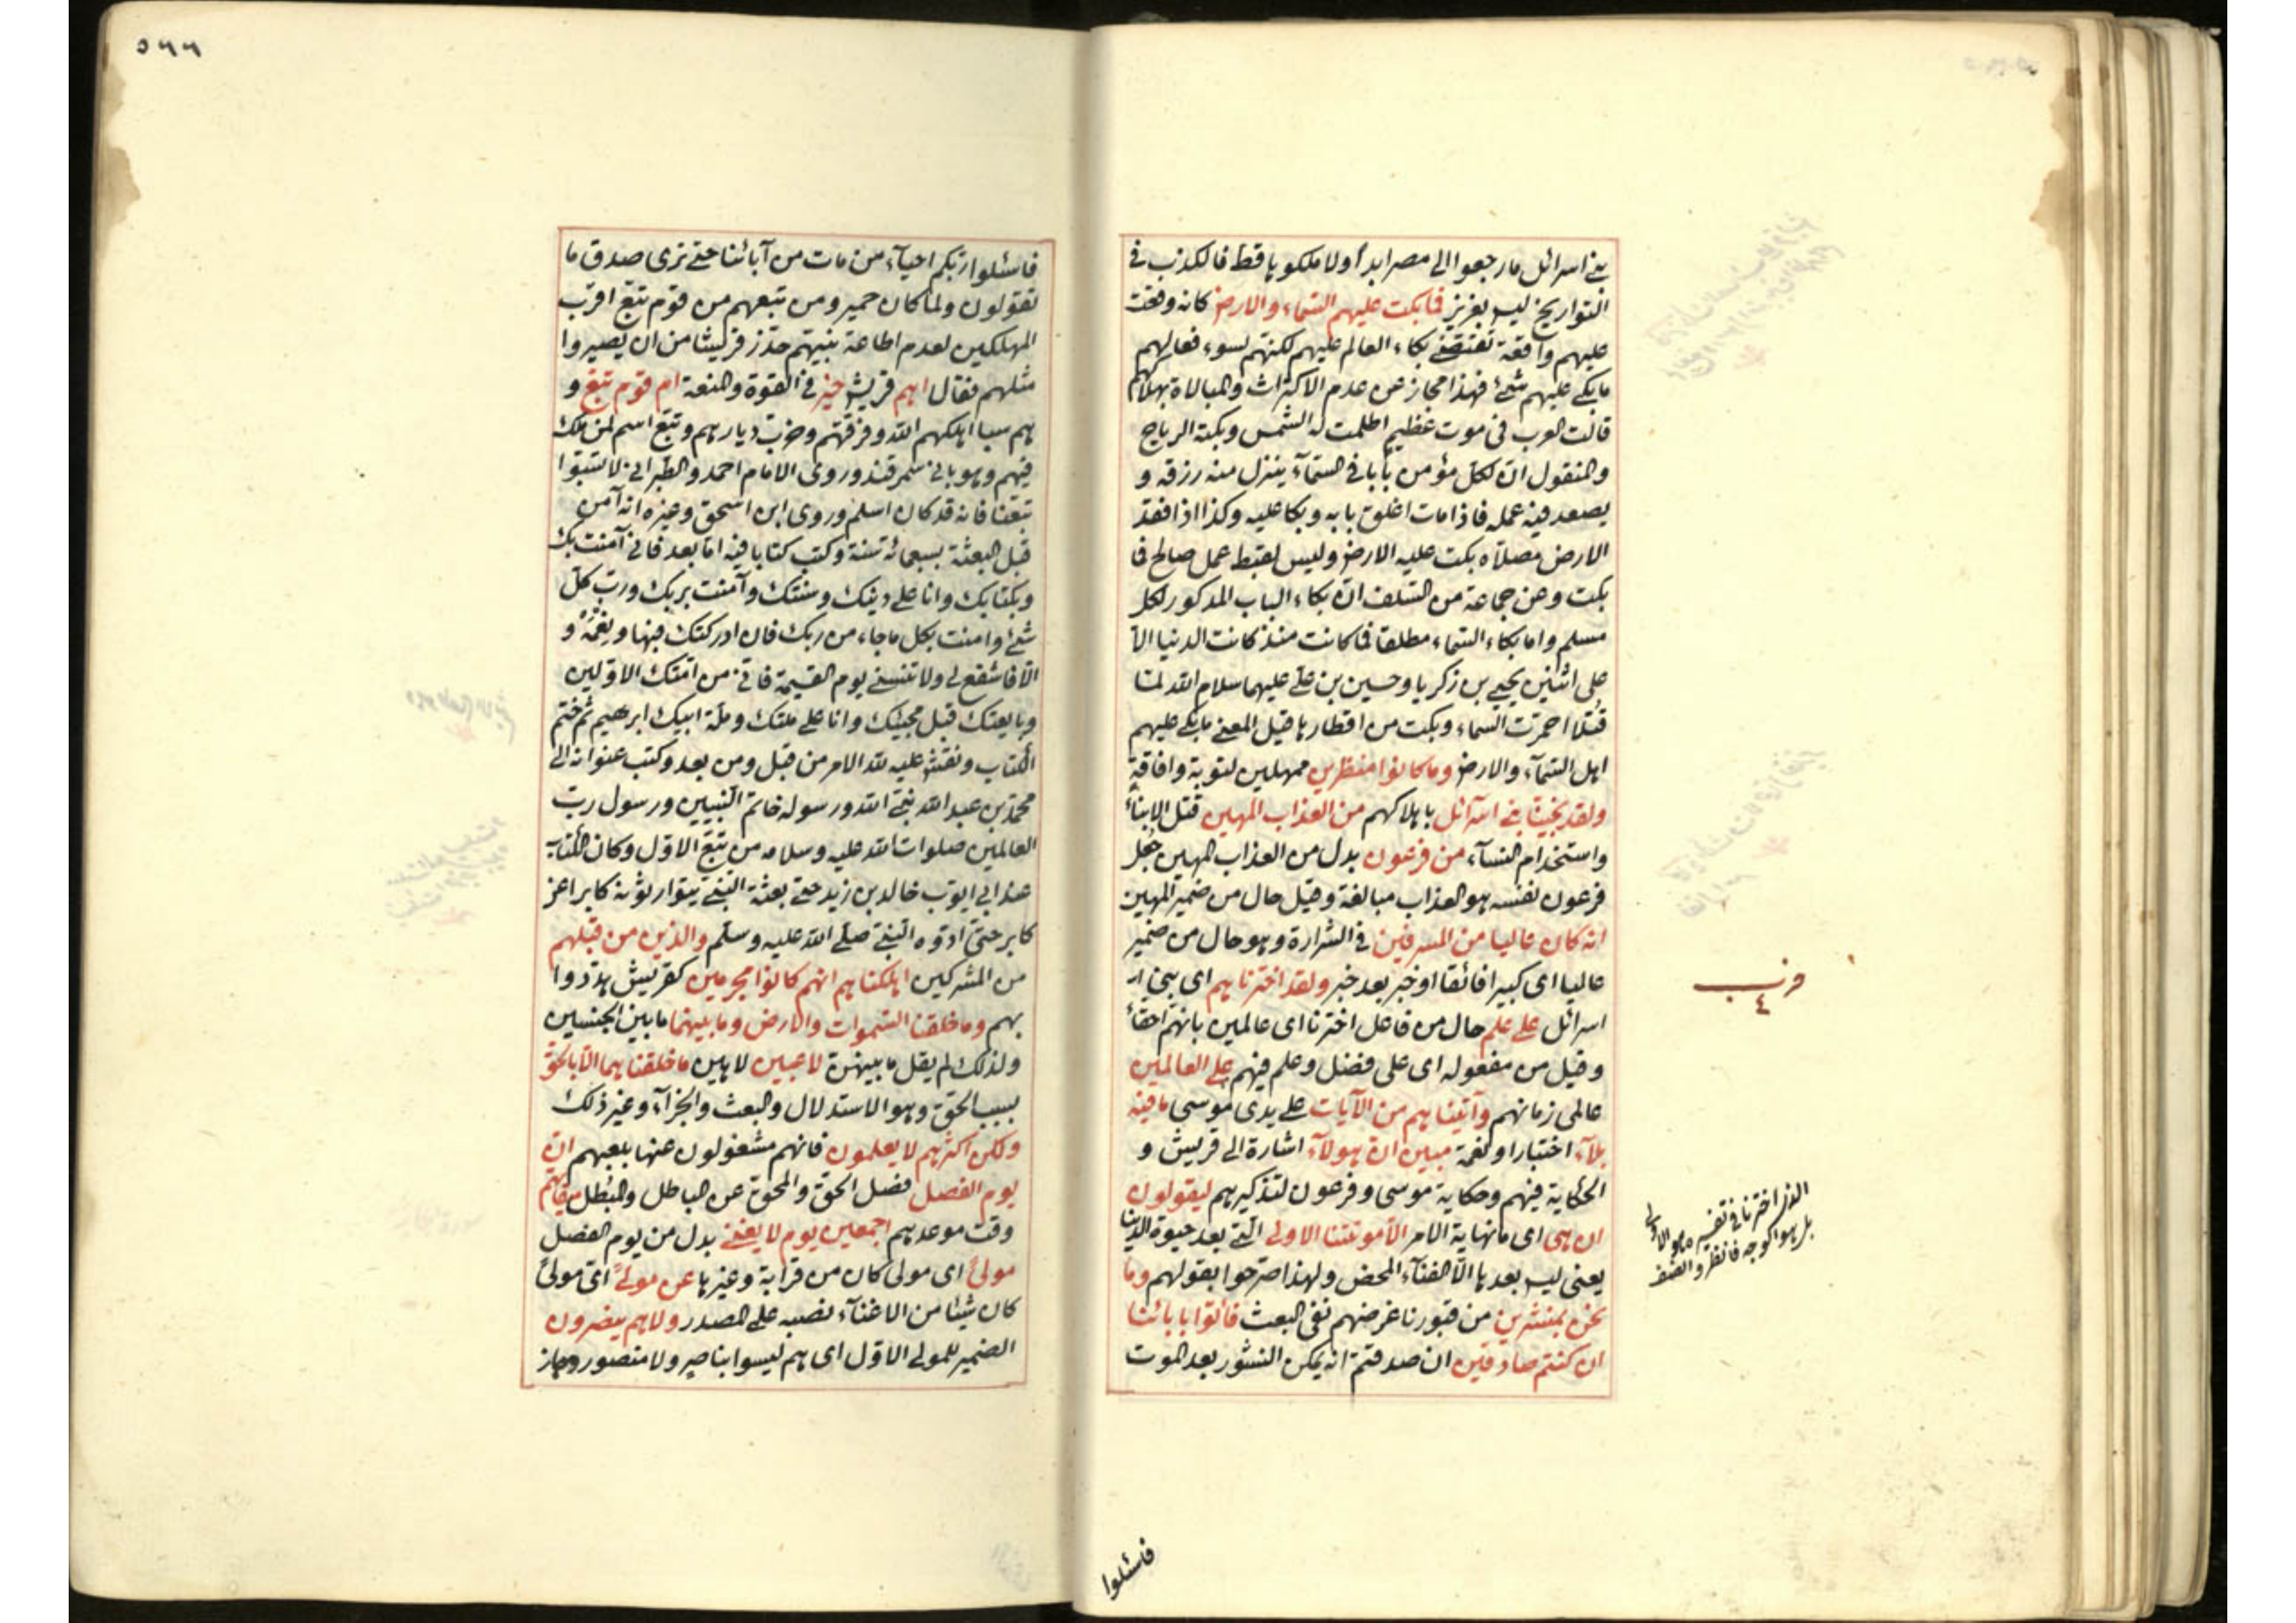 بني اسرائل ما رجعوا الى مصر ابدا ولا ملكوها قط فالكذب في
التواريخ ليس بعزيز فما بكت عليهم السماء والارض كانه وقعت
عليهم واقعة تقتضي بكاء العالم عليهم لكنهم لسوء فعالهم
ما بكى عليهم شئ فهذا مجاز عن عدم الاكتراث والمبالاة بهلاكهم
قالت العرب في موت عظيم اظلمت له الشمس وبكته الرياح
والمنقول ان لكل مؤمن بابا في السمآء ينزل منه رزقه و
يصعد فيه عمله فاذا مات اغلق بابه وبكا عليه وكذا اذا فقد
الارض مصلاه بكت عليه الارض وليس لقبط عمل صالح فما
بكت وعن جماعة من السلف ان بكاء الباب المذكور لكل
مسلم واما بكاء السماء مطلقا فما كانت منذ كانت الدنيا الا
على اثنين يحيى بن زكريا وحسين بن علي عليهما سلام الله لما
قتلا احمرت السماء وبكت من اقطارها قيل المعنى ما بكى عليهم
اهل السمآء والارض وما كانوا منظرين ممهلين لتوبة وافاقة
ولقد نجينا بني اسرآئل باهلاكهم من العذاب المهين قتل الابناء
واستخدام النسآء من فرعون بدل من العذاب المهين جعل
فرعون نفسه هو العذاب مبالغة وقيل حال من ضمير المهين
انه كان عاليا من المسرفين في الشرارة وهو حال من ضمير
عاليا اى كبيرا فائقا او خبر بعد خبر ولقد اخترناهم اى بني ار
اسرائل على علم حال من فاعل اخترنا اى عالمين بانهم احقاء
وقيل من مفعوله اى على فضل وعلم فيهم على العالمين
عالمى زمانهم وآتيناهم من الآيات على يدى موسى ما فيه
بلآء اختبار او نعمة مبين ان هولآء اشارة الى قريش و
الحكاية فيهم وحكاية موسى وفرعون لتذكيرهم ليقولون
ان هي اى ما نهاية الامر الا موتتنا الاولى التي بعد حيوة الدنيا
يعنى ليس بعدها الا الفنآء المحض ولهذا صرحوا بقولهم وما
نحن بمنشرين من قبورنا غرضهم نفى البعث فأتوا بابائنا
ان كنتم صادقين ان صدقتم انه يمكن النشور بعد الموت
حزب
٤
الذى اخترنا في تفسيره هو الاولى
بل هو الوجه فانظر وانصف
فاسئلوا
٥٦٦
فاسئلوا ربكم احيآء من مات من آبائنا حتى نرى صدق ما
تقولون ولما كان حمير ومن تبعهم من قوم تبع اقرب
المهلكين لعدم اطاعة نبيهم حذر قريشا من ان يصيروا
مثلهم فقال اهم قريش خير في القوة والمنعة ام قوم تبع و
هم سبا اهلكهم الله وفرقهم وخرب ديارهم وتبع اسم لمن ملك
فيهم وهو باني سمرقند وروى الامام احمد والطبراني لا تسبوا
تبعا فانه قد كان اسلم وروى ابن اسحق وغيره انه آمن
قبل البعثة بسبعمائة سنة وكتب كتابا فيه اما بعد فاني آمنت بك
وبكتابك وانا على دينك وسنتك وآمنت بربك ورب كل
شئ وامنت بكل ما جاء من ربك فان ادركتك فبها ونعمة و
الا فاشفع لي ولا تنسني يوم القيمة فاني من امتك الاولين
وبايعتك قبل مجيئك وانا على ملتك وملة ابيك ابرهيم ثم ختم
الكتاب ونقش عليه لله الامر من قبل ومن بعد وكتب عنوانه الى
محمد بن عبد الله نبي الله ورسوله خاتم النبيين ورسول رب
العالمين صلوات الله عليه وسلامه من تبع الاول وكان الكتاب
عند ابي ايوب خالد بن زيد حتى بعثة النبي يتوارثونه كابرا عن
كابر حتى ادوه النبي صلى الله عليه وسلم والذين من قبلهم
من المشركين اهلكناهم انهم كانوا مجرمين كقريش هددوا
بهم وما خلقنا السموات والارض وما بينهما ما بين الجنسين
ولذلك لم يقل ما بينهن لاعبين لاهين ما خلقناهما الا بالحق
بسبب الحق وهو الاستدلال والبعث والجزآء وغير ذلك
ولكن اكثرهم لا يعلمون فانهم مشغولون عنها بلعبهم ان
يوم الفصل فصل الحق والمحق عن الباطل والمبطل ميقاتهم
وقت موعدهم اجمعين يوم لا يغني بدل من يوم الفصل
مولى اى مولى كان من قرابة وغيرها عن مولى اى مولى
كان شيئا من الاغنآء نصبه على المصدر ولا هم ينصرون
الضمير للمولى الاول اى هم ليسوا بناصر ولا منصور وجاز